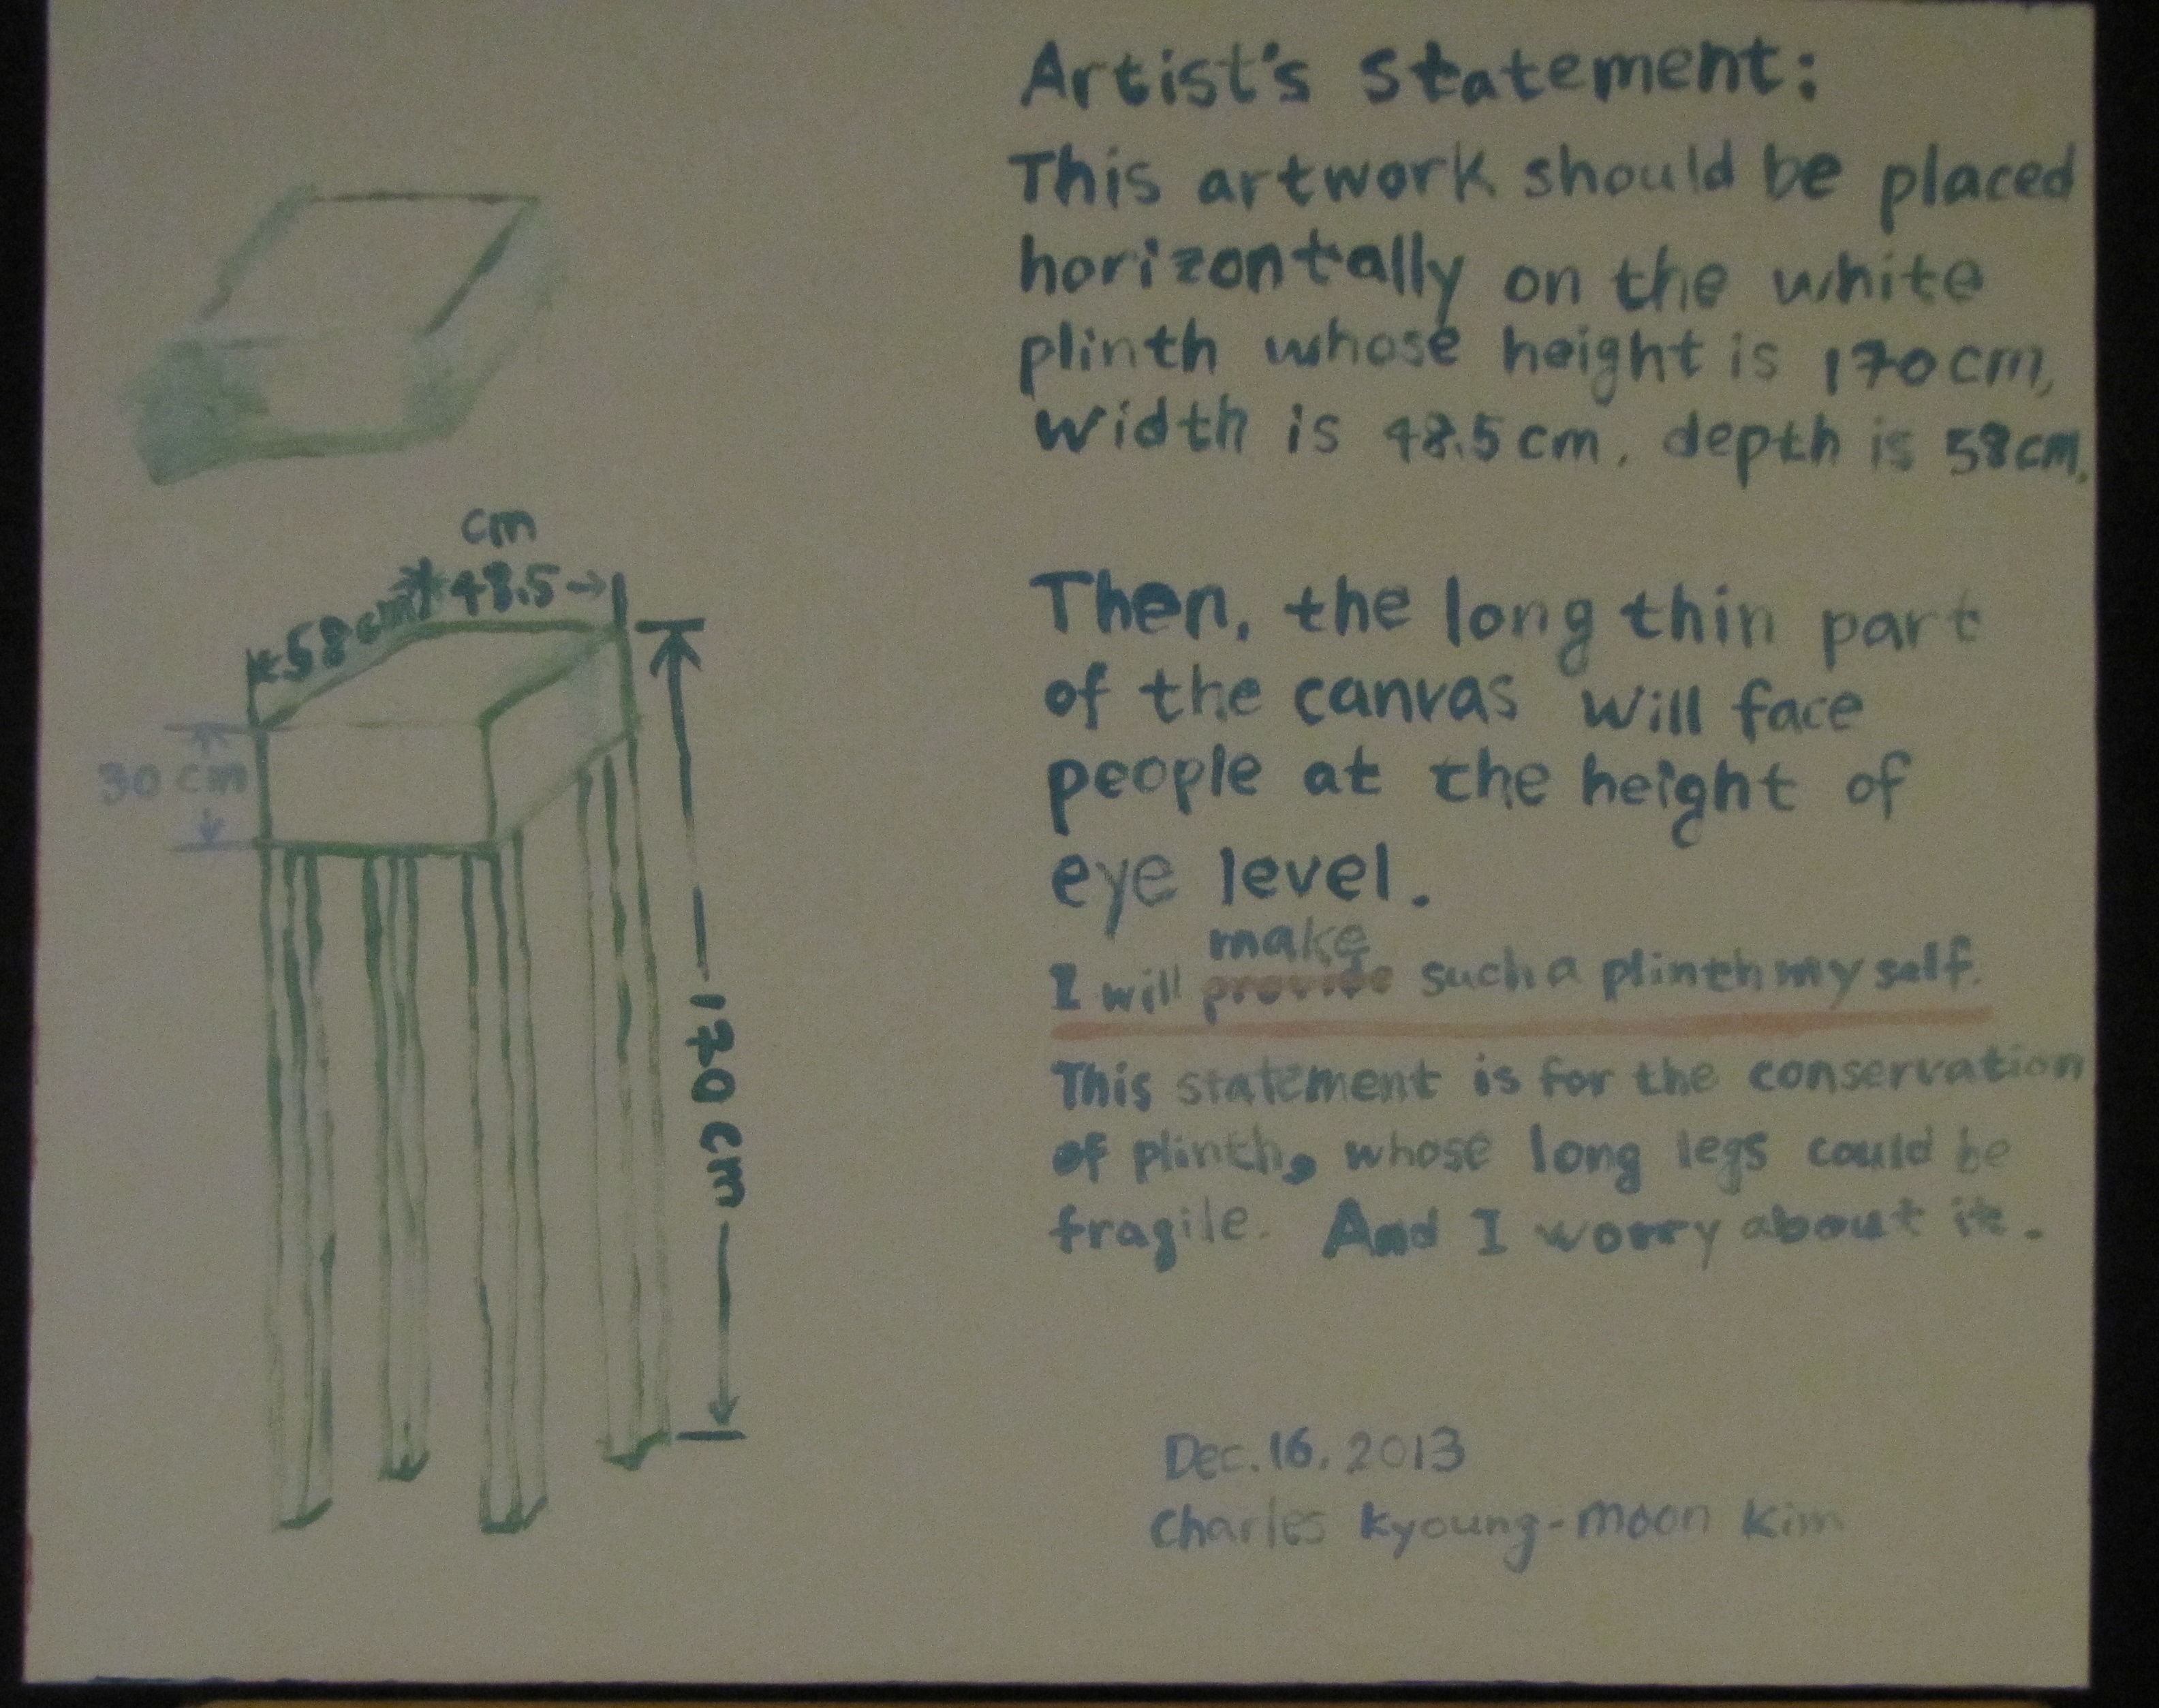 Artist's Statement:
This artwork should be placed
horizontally on the white
plinth whose height is 170cm,
width is 48.5cm, depth is 58cm.
cm
58cm 48.5
30cm
170cm
Then, the long thin part
of the canvas will face
people at the height of
eye level.
make
I will provide such a plinth my self.
This statement is for the conservation
of plinth, whose long legs could be
fragile. And I worry about it.
Dec. 16. 2013
Charles Kyoung-moon Kim